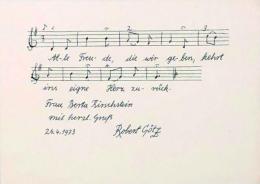 1 2 3
Al-le Freu-de, die wir ge-ben, kehrt
ins eigne Herz zu-rück.
Frau Berta Kirschstein
mit herzl. Gruß
24.4.1973 Robert Götz